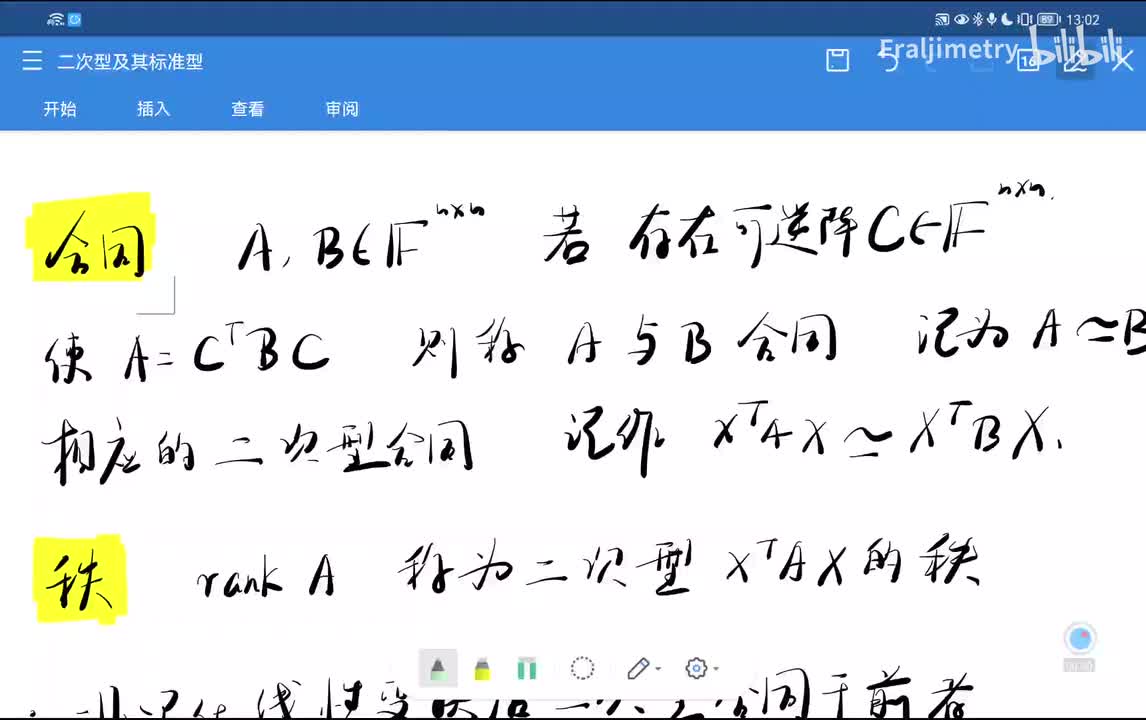 13:02
Eraljimetry bilibili
二次型及其标准型
16
开始 插入 查看 审阅
合同 A, B∈F^{n×n} 若 存在可逆阵 C∈F^{n×n}.
使 A=C^TBC 则称 A 与 B 合同 记为 A≃B
相应的二次型合同 记作 X^TAX≃X^TBX.
秩 rank A 称为二次型 X^TAX 的秩